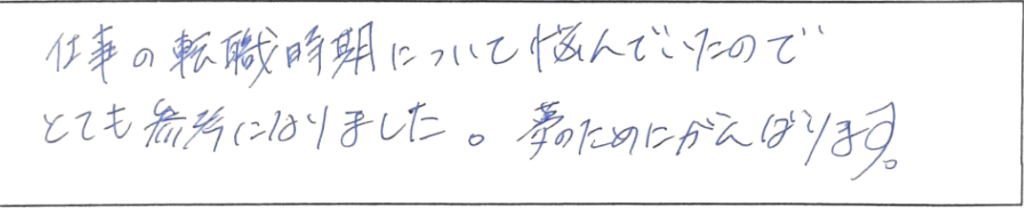 仕事の転職時期について悩んでいたので
とても参考になりました。夢のためにがんばります。